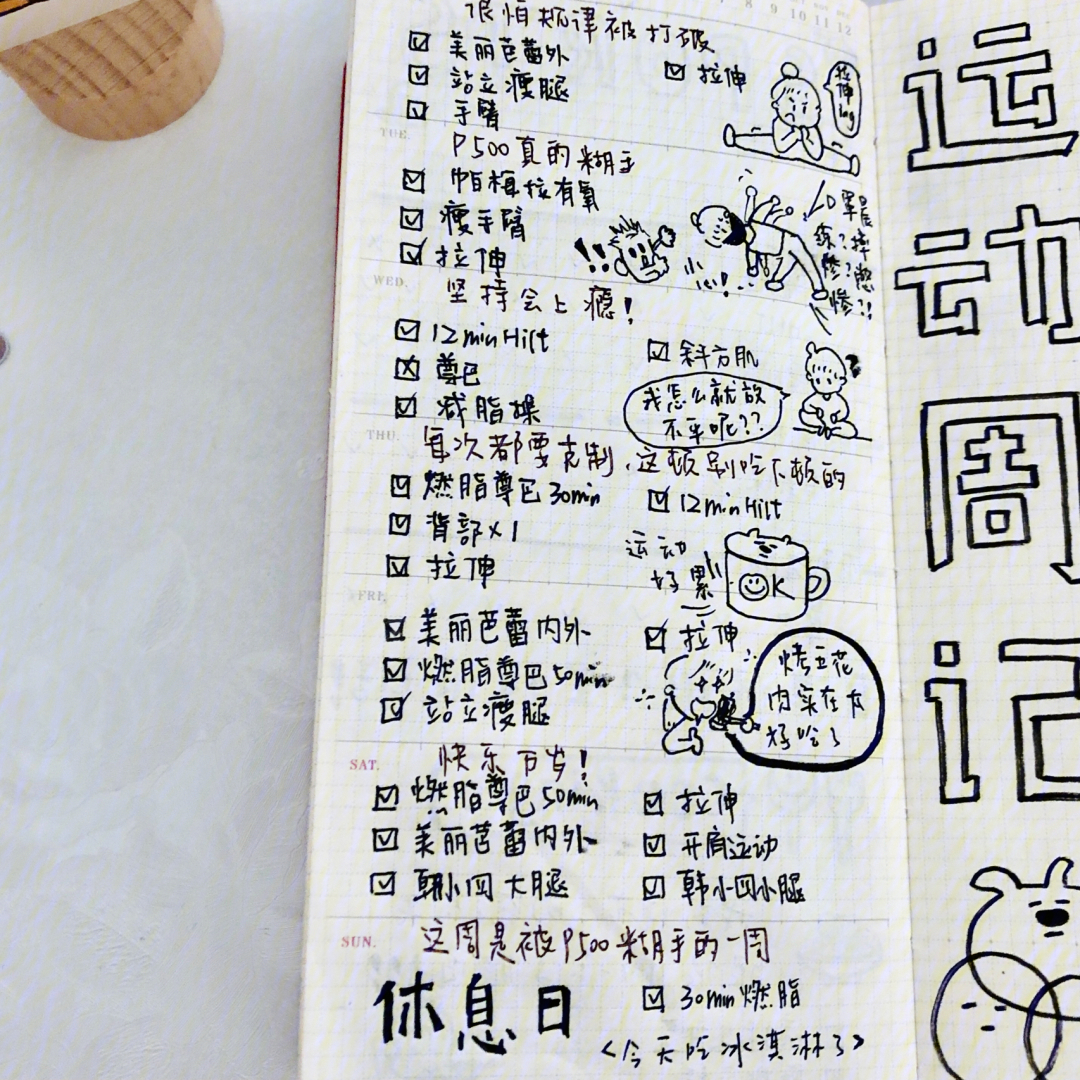 8 9 10 11 12
很怕规律被打破
美丽芭蕾外
拉伸
站立瘦腿
手臂
拉伸ing
TUE.
P500真的糊手
帕梅拉有氧
瘦手臂
拉伸
!!
小心!...
WED.
坚持会上瘾!
12min Hiit
斜方肌
尊巴
减脂操
我怎么就放
不平呢??
THU.
每次都要克制,这顿别吃下顿的
燃脂尊巴30min
12min Hiit
背部x1
拉伸
运动
好累
OK
FRI.
美丽芭蕾内外
拉伸
燃脂尊巴50min
站立瘦腿
烤五花
肉实在太
好吃了
SAT.
快乐万岁!
燃脂尊巴50min
拉伸
美丽芭蕾内外
开肩运动
韩小四大腿
韩小四小腿
SUN.
这周是被P500糊手的一周
休息日
30min燃脂
<今天吃冰淇淋了>
运
动
周
记